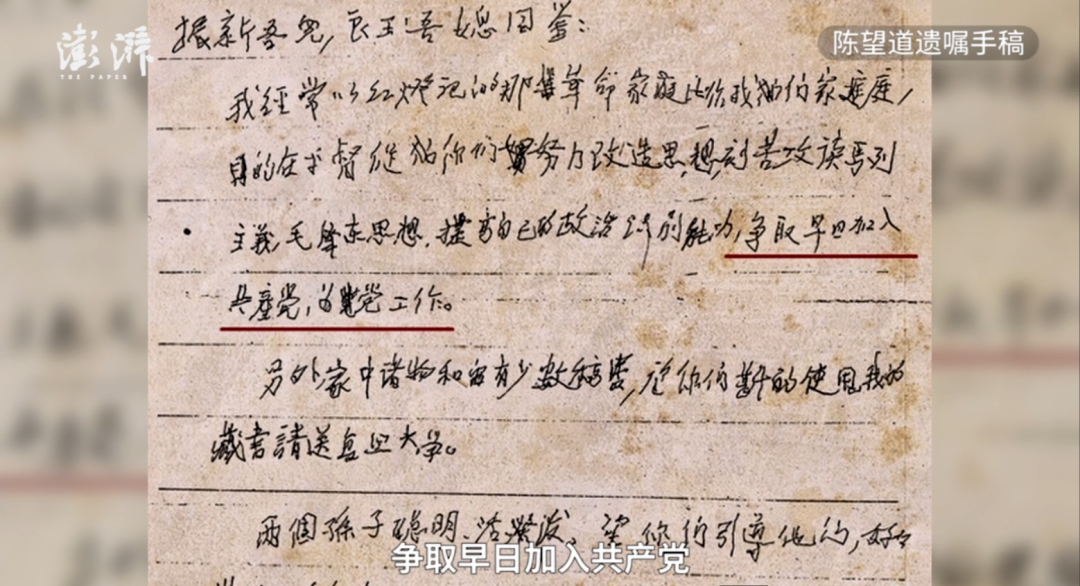 澎湃
THE PAPER
陈望道遗嘱手稿
振新吾兒，良玉吾媳同鉴：
我經常以红燈记的那革命家庭比作我们的家庭，
目的在于督促你们努力改造思想，刻苦攻读馬列
主義，毛泽东思想，提高自己的政治识别能力，争取早日加入
共産党，为党工作。
另外家中诸物和留有少数稿费，你们的使用，我的
藏書請送复旦大学。
两個孫子聪明、活潑，望你们引導他们，好好
争取早日加入共产党